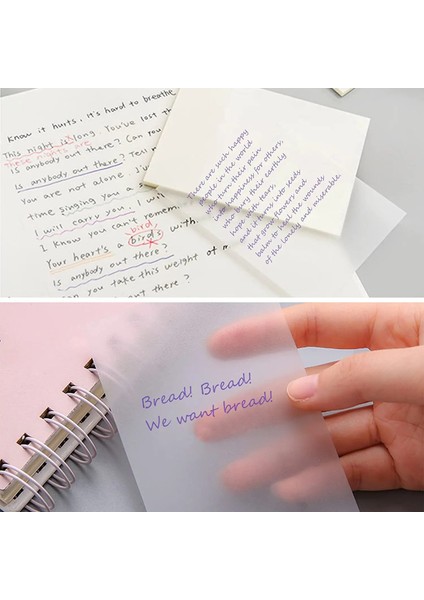 Know it hurts, it's hard to breathe
This night is long. You've lost th
these nights are
Is anybody out there? Can you
Is anybody out there? Tell
You are not alone. I
time singing you a s
I will carry you.
I know you can't remem
bird
Your heart's a birds with
Is anybody out there?
Can you take this weight of m
is anybody out there?
There are such happy
people in the world
who turn their pain
into happiness for others.
who bury their earthly
hope with tears,
and it turns into seeds
that grow flowers and
balm to heal the wounds
of the lonely and miserable.
Bread! Bread!
We want bread!